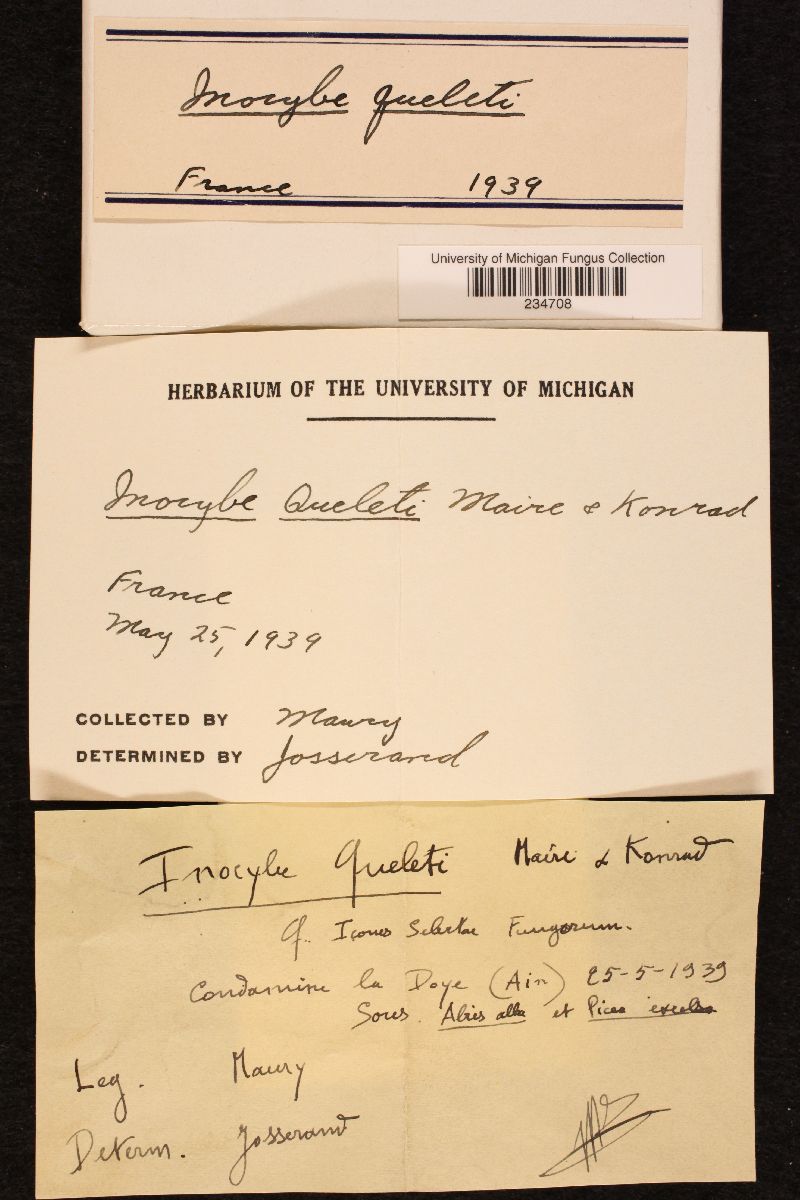 Inocybe queleti
France 1939
University of Michigan Fungus Collection
234708
HERBARIUM OF THE UNIVERSITY OF MICHIGAN
Inocybe Queleti Maire & Konrad
France
May 25, 1939
COLLECTED BY Maury
DETERMINED BY Josserand
Inocybe Queleti Maire & Konrad
cf. Icones Selectae Fungorum.
Condamine la Doye (Ain) 25-5-1939
Sous Abies alba et Picea excelsa
Leg. Maury
Determ. Josserand